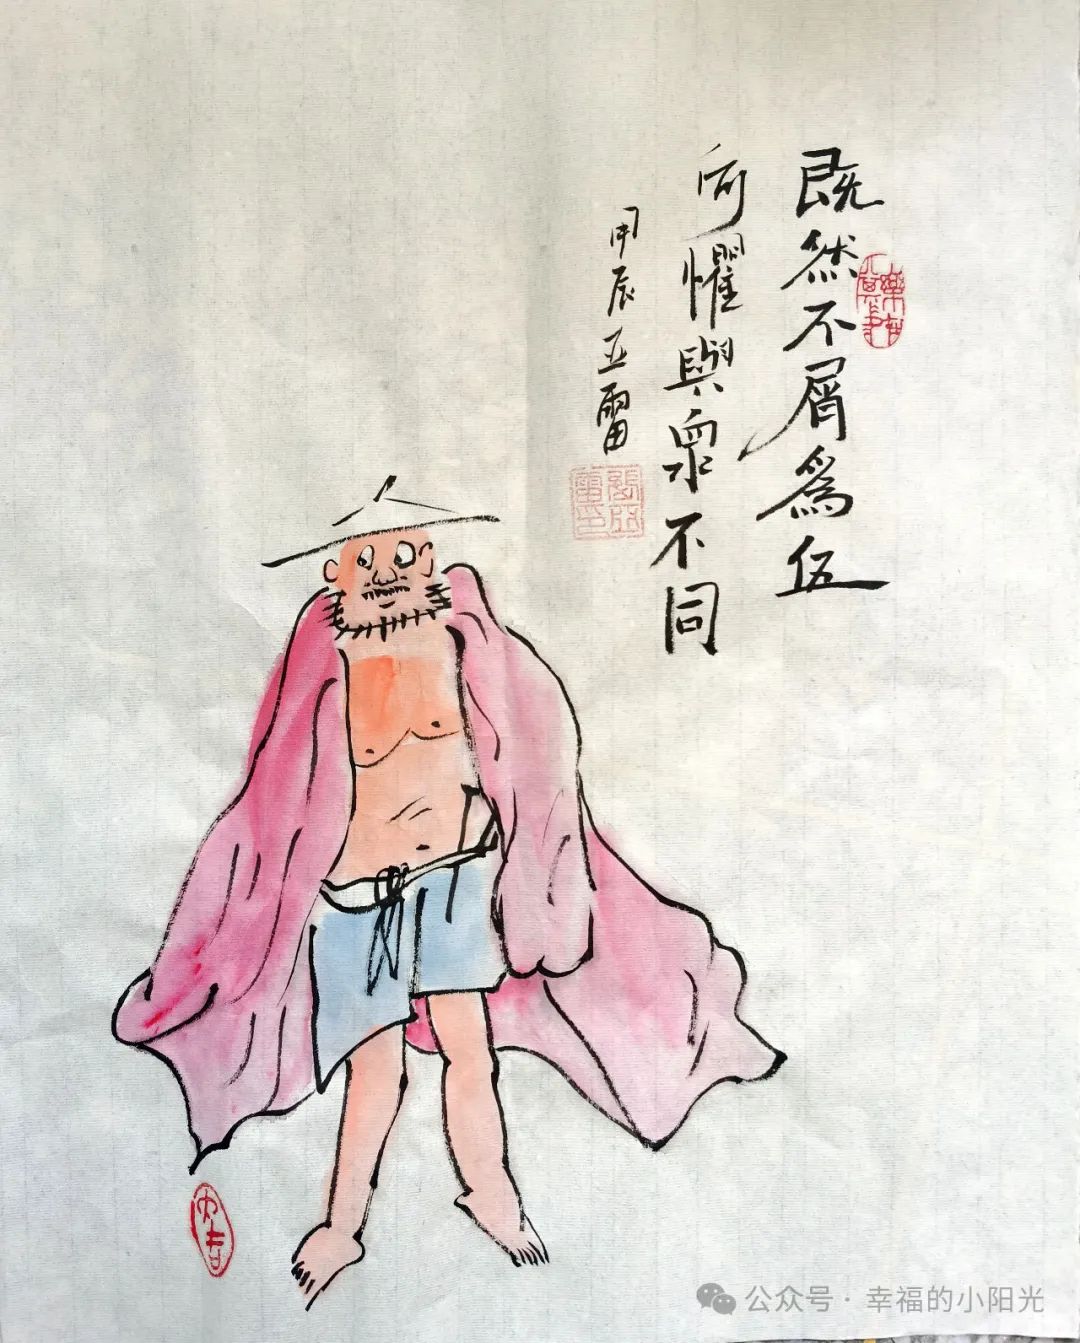 既然不屑為伍
何懼與眾不同
甲辰 亚雷
大吉
公众号 · 幸福的小阳光